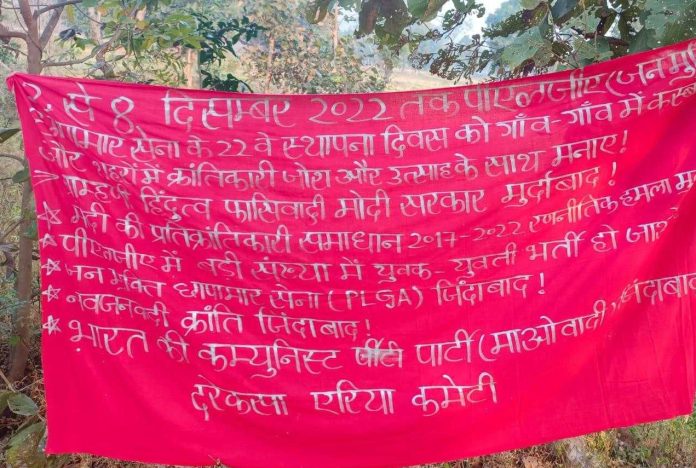 2 से 8 दिसम्बर 2022 तक पीएलजीए (जन मु
छापामार सेना के 22 वे स्थापना दिवस को गाँव-गाँव में कस्बा
और शहरों में क्रांतिकारी जोश और उत्साह के साथ मनाए!
हिंदुत्व फासिवादी मोदी सरकार मुर्दाबाद!
की प्रतिक्रांतिकारी समाधान 2017-2022 रणनीतिक हमला
पीएलजीए में बडी संख्या में युवक-युवती भर्ती हो जाओ
जन मुक्ति छापामार सेना (PLGA) जिंदाबाद!
नवजनवादी क्रांति जिंदाबाद!
भारत की कम्युनिस्ट पार्टी (माओवादी) जिंदाबाद
दरेकसा एरिया कमेटी